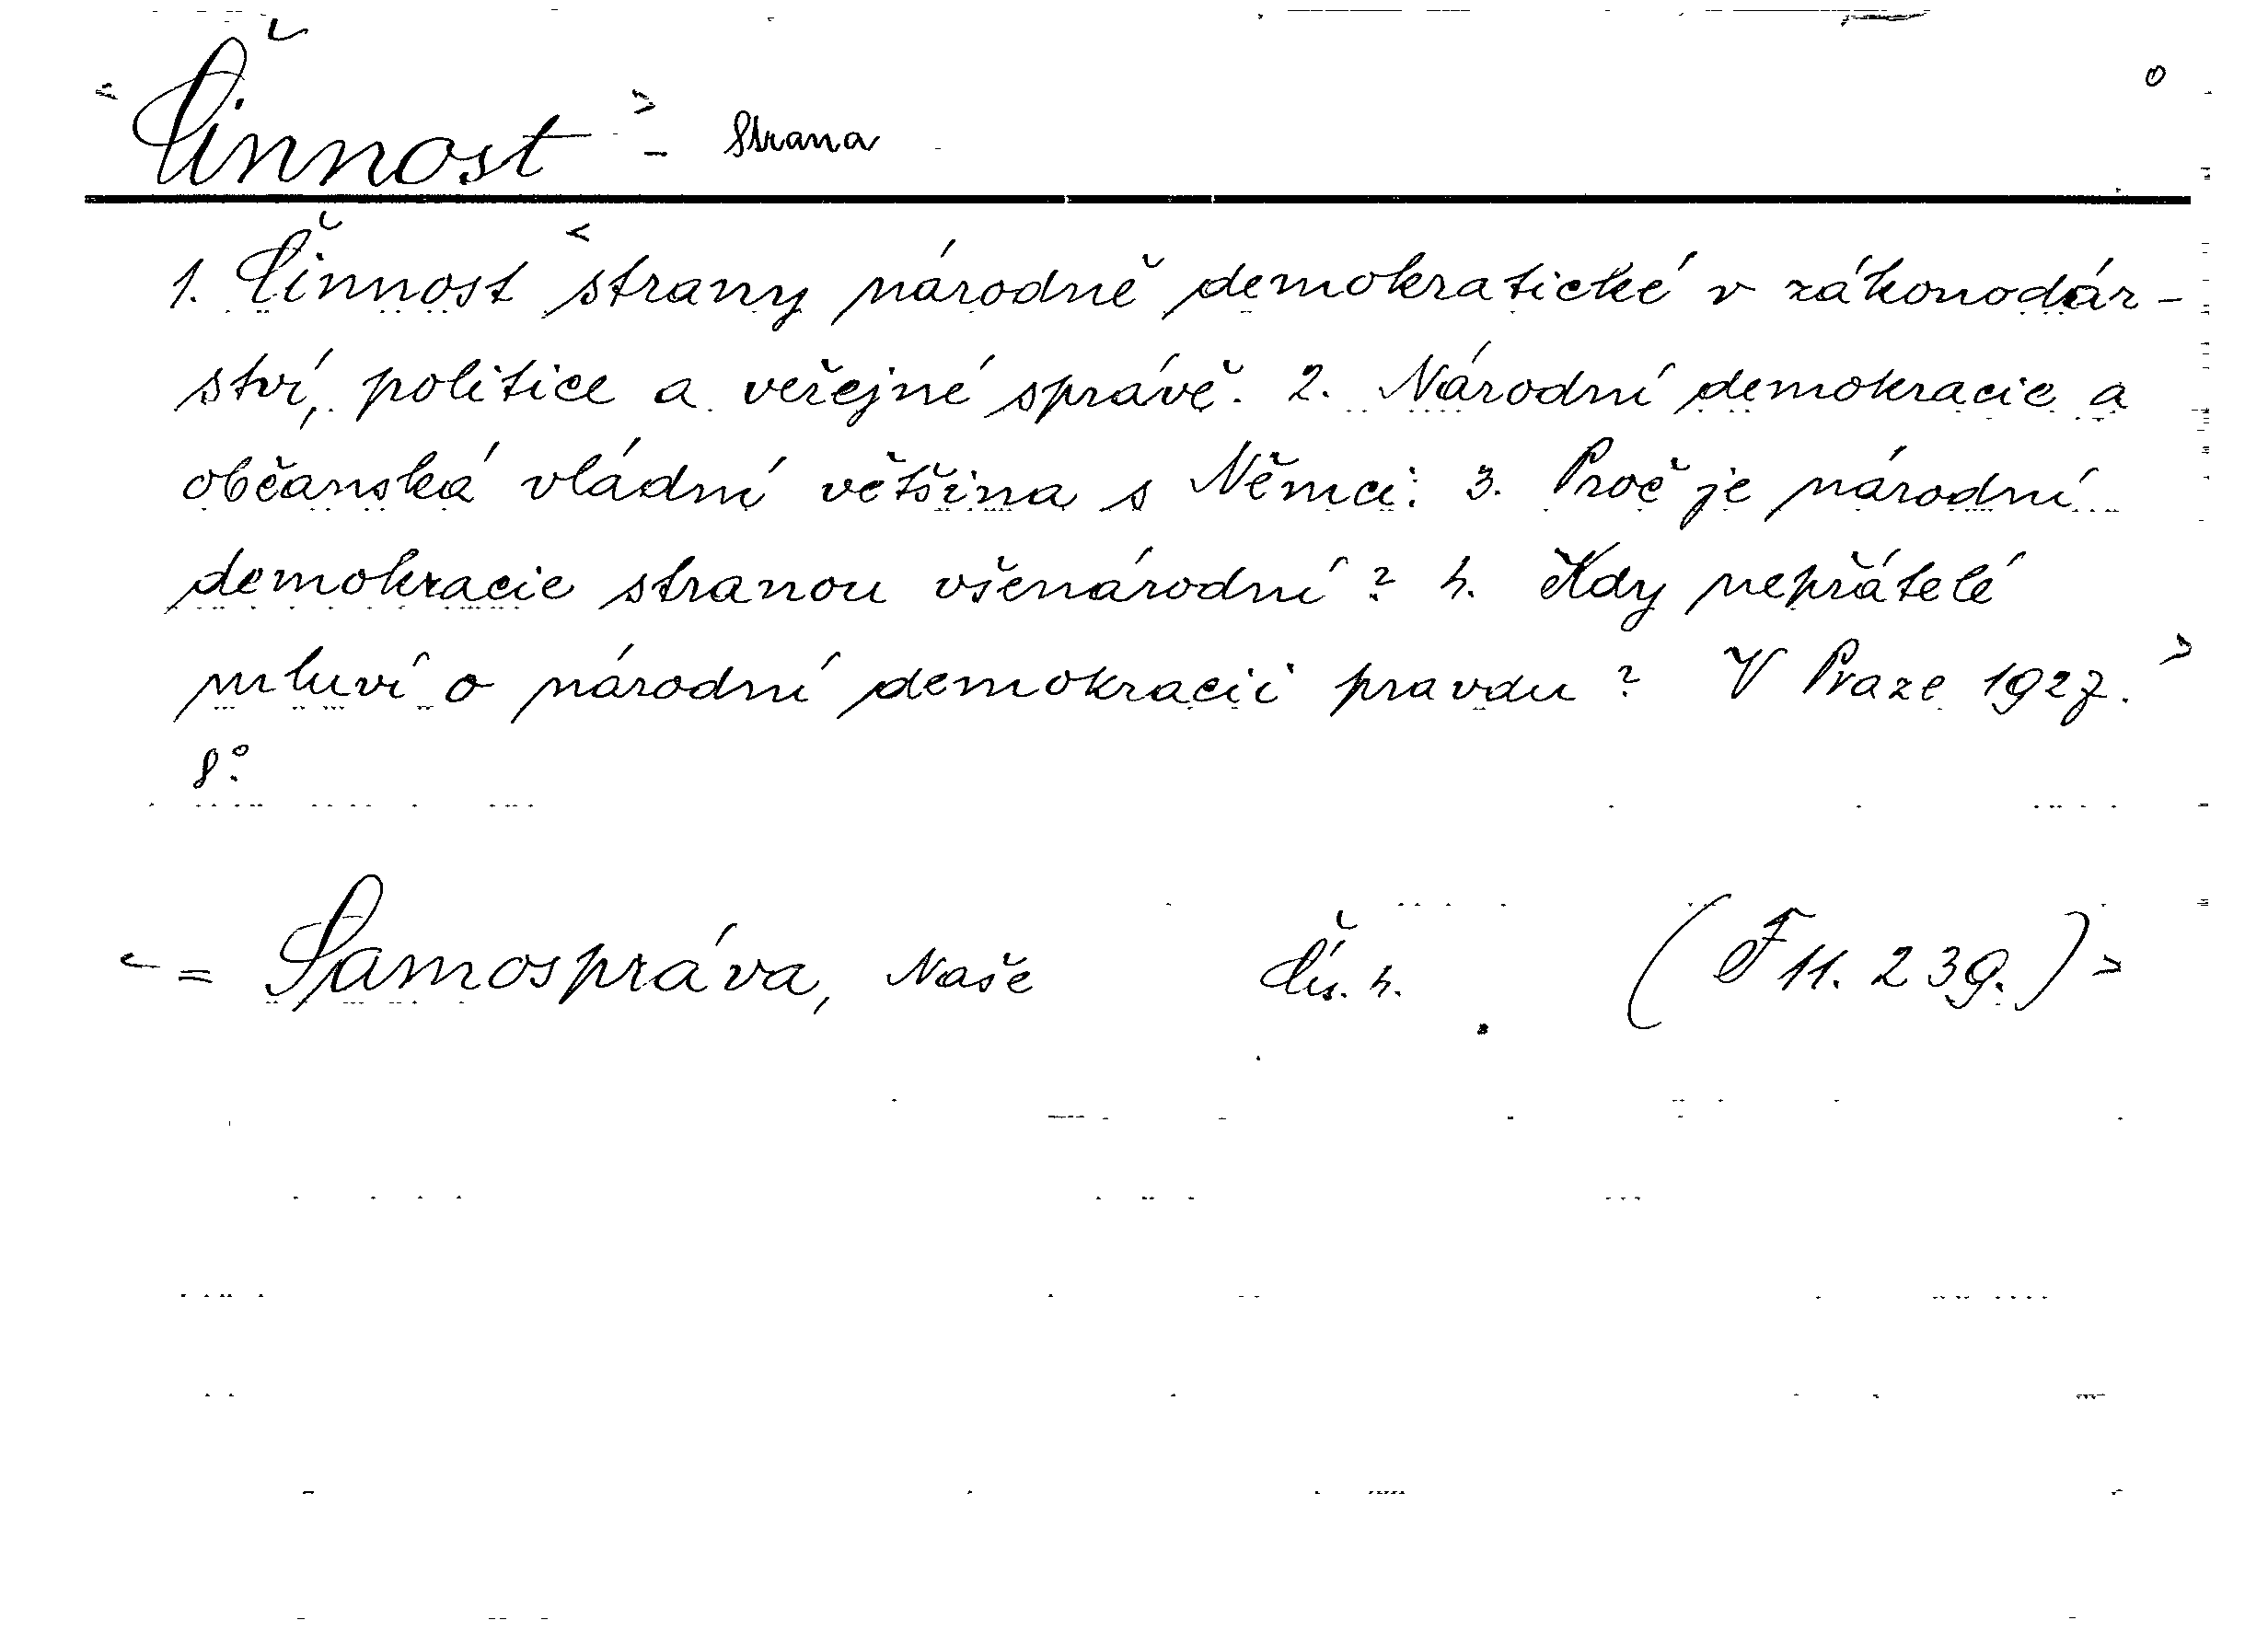 Činnost - Strana
1. Činnost strany národně demokratické v zákonodár-
ství, politice a veřejné správě. 2. Národní demokracie a
občanská vládní většina s Němci. 3. Proč je národní
demokracie stranou všenárodní? 4. Kdy nepřátelé
mluví o národní demokracii pravdu? V Praze 1927.
8°.
= Samospráva, Naše Čís. 4. (F 11. 239.)